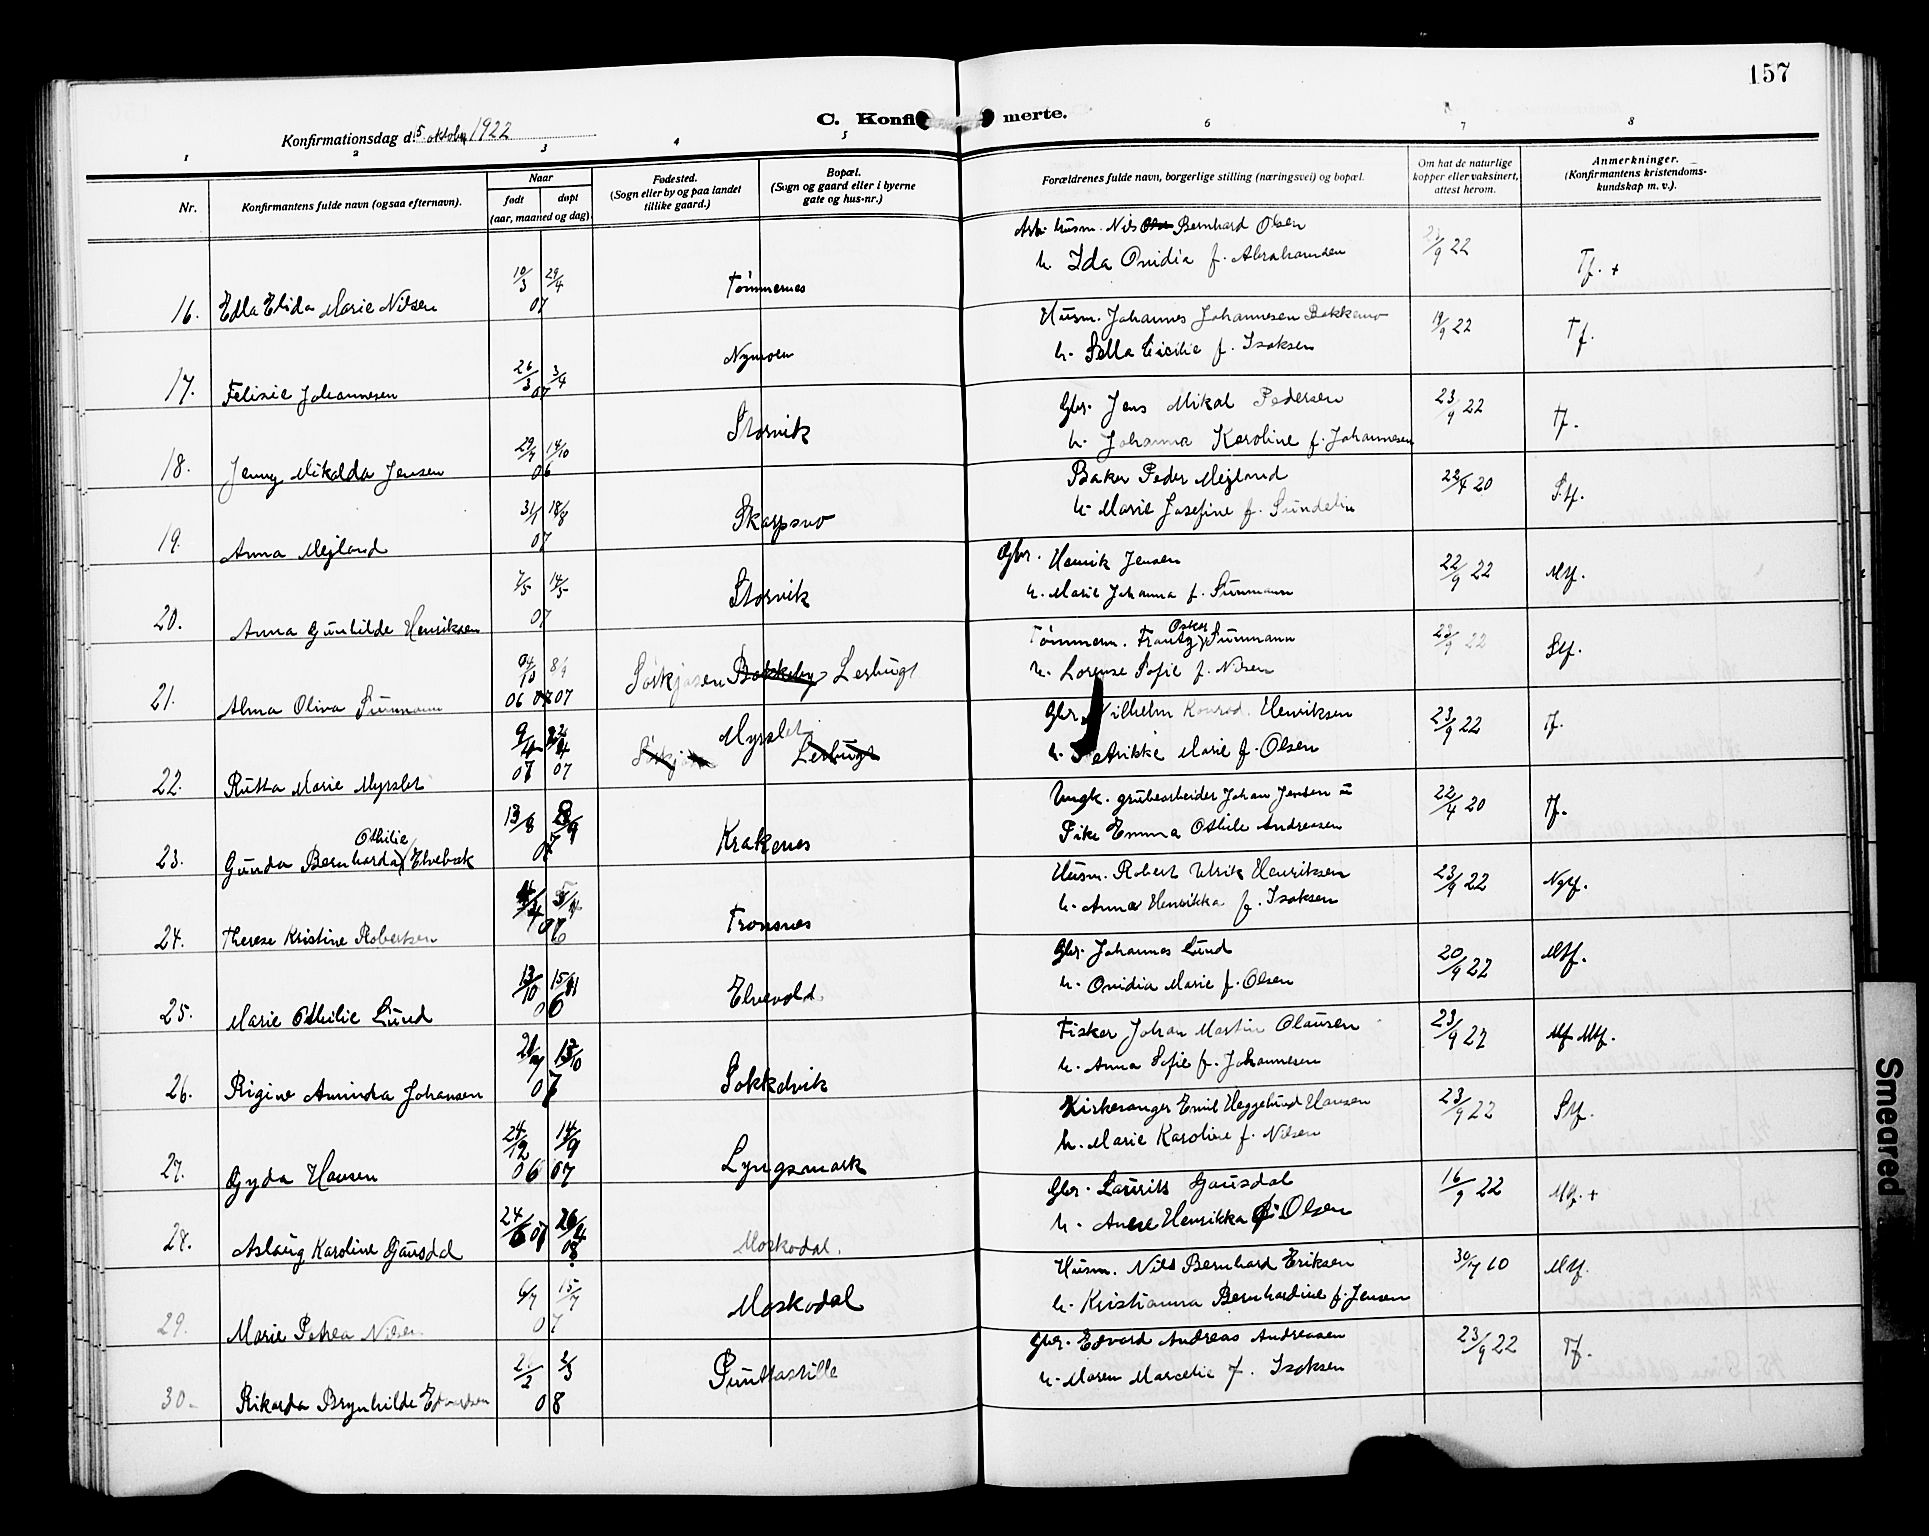 157
C. Konfi merte.
Konfirmationsdag d. 5 oktober 1922
1 2 3 4 5 6 7 8
Nr.
Konfirmantens fulde navn (ogsaa efternavn).
Naar
født døpt
(aar, maaned og dag)
Fødested.
(Sogn eller by og paa landet
tillike gaard.)
Bopæl.
(Sogn og gaard eller i byerne
gate og hus-nr.)
Forældrenes fulde navn, borgerlige stilling (næringsvei) og bopæl.
Om hat de naturlige
kopper eller vaksinert,
attest herom.
Anmerkninger.
(Konfirmantens kristendoms-
kundskap m. v.).
Arb. Husm. Nils Bernhard Olsen
h. Ida Ovidia f. Abrahamsen
16. Edla Elida Marie Nilsen 10/3 29/4 07 Tømmernes /9 22 Tf. +
Husm. Johannes Johannesen Bakkemo
h. Sella Cicilie f. Isaksen
17. Felixie Johannesen 26/3 3/4 07 Nymoen 19/9 22 Tf.
Gbr. Jens Mikal Pedersen
h. Johanna Karoline f. Johannesen
18. Jenny Mikalda Jensen 14/10 06 Storvik 23/9 22 Tf.
Baker Peder Mejland
h. Marie Josefine f. Sundelin
19. Anna Mejland 18/8 07 Skarpsno 22/4 20 Stf.
Gbr. Henrik Jensen
h. Marie Johanna f. Sunmann
20. Anna Gunhilde Henriksen 7/5 14/5 07 Storvik 22/9 22 Mtf.
Tømmerm. Frantz Oskar Sunmann
h. Lorense Sofie f. Nilsen
21. Alma Oliva Sunmann 06 07 Sørkjosen Bakkeby Lerbugt 23/9 22 Stf.
Gbr. Vilhelm Konrad Henriksen
h. Marie f. Olsen
22. Rutta Marie Myrslet 9/4 07 07 Myrslet Sørkjosen Lerbugt 23/9 22 Tf.
Ungk. grubearbeider Johan Jensen
Pike Emma Othile Andreasen
23. Gunda Bernharda Othilie Elvebæk 13/8 07 Krakenes 22/4 20 Tf.
Husm. Robert Ulrik Henriksen
h. Anna Henrikka f. Isaksen
24. Therese Kristine Robertsen Tronsnes 23/9 22 Ngtf.
Gbr. Johannes Lund
h. Ovidia Marie f. Olsen
25. Marie Othilie Lund 13/10 15/11 06 Elvevold. 20/9 22 Mtf.
Fisker Johan Martin Olausen
h. Anna Sofie f. Johannesen
26. Rigine Aminda Johansen Sokkelvik 23/9 22 Mtf.
Kirkesanger Emil Heggelund Hansen
h. Marie Karoline f. Nilsen
27. Gyda Hansen 24/12 14/9 06 07 Lyngsmark 23/9 22 Stf.
Gbr. Laurits Gausdal
h. Anne Henrikka f. Olsen
28. Aslaug Karoline Gausdal 24/6 07 26/4 08 Moskodal. 16/9 22 Mtf. +
Husm. Nils Bernhard Eriksen
h. Kristianna Bernhardine f. Jensen
29. Marie Petrea Nilsen 6/7 15/7 07 Moskodal 30/7 10 Mtf.
Gbr. Edvard Andreas Andreasen
h. Maren Marcelie f. Isaksen
30. Rikarda Brynhilde Edvardsen 2/3 08 Punttastille 23/9 22 Tf.
Smeared